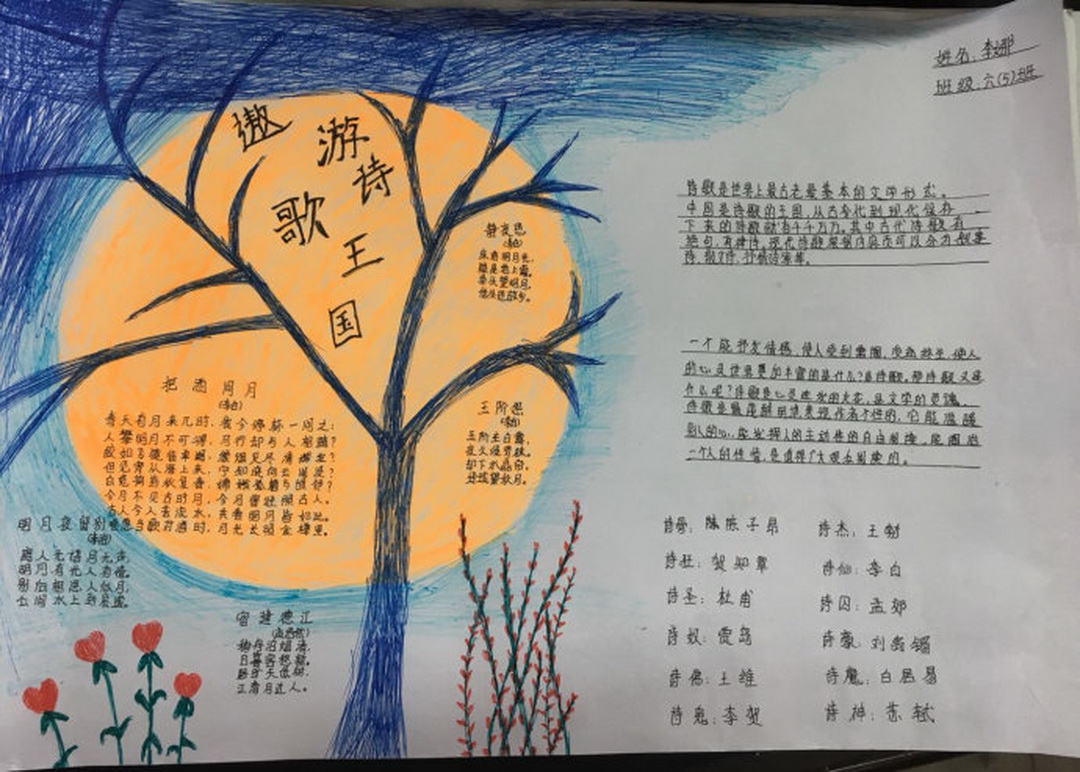 姓名：李娜
班级：六(5)班
遨游诗歌王国
诗歌是世界上最古老最基本的文学形式。
中国是诗歌的王国，从古代到现代保存
下来的诗歌就有千千万万。其中古代诗歌有
绝句、有律诗。现代诗歌按照内容而可以分为叙事
诗、抒情诗
静夜思
(李白)
床前明月光，
疑是地上霜。
举头望明月，
低头思故乡。
一个能抒发情感，使人受到
的心灵世界更加丰富的是什么？是诗歌。那诗歌又是
什么呢？诗歌是心灵 的火花，是文学的灵魂。
诗歌是最 来表现作者个性的，它能温暖
别人的心，能发挥人的主动性的自由
一个人的性情，是值得广大 的。
把酒问月
(李白)
青天有月来几时，我今停杯一问之：
人攀明月不可得，月行却与人相随？
但见宵从海上来，宁知晓向云间没？
今月不见古时月，今月曾经照古人。
古人今人若流水，共看明月皆如此。
当歌对酒时，月光长照金樽里。
玉阶怨
(李白)
玉阶生白露，
夜久侵罗袜。
却下水晶帘，
玲珑望秋月。
明月夜留别
离人无语月无声，
明月有光人有情。
别后相思人似月，
云间水上到层城。
宿建德江
(孟浩然)
移舟泊烟渚，
日暮客愁新。
野旷天低树，
江清月近人。
诗骨：陈陈子昂
诗杰：王勃
诗狂：贺知章
诗仙：李白
诗圣：杜甫
诗囚：孟郊
诗奴：贾岛
诗豪：刘禹锡
诗佛：王维
诗魔：白居易
诗鬼：李贺
诗神：苏轼